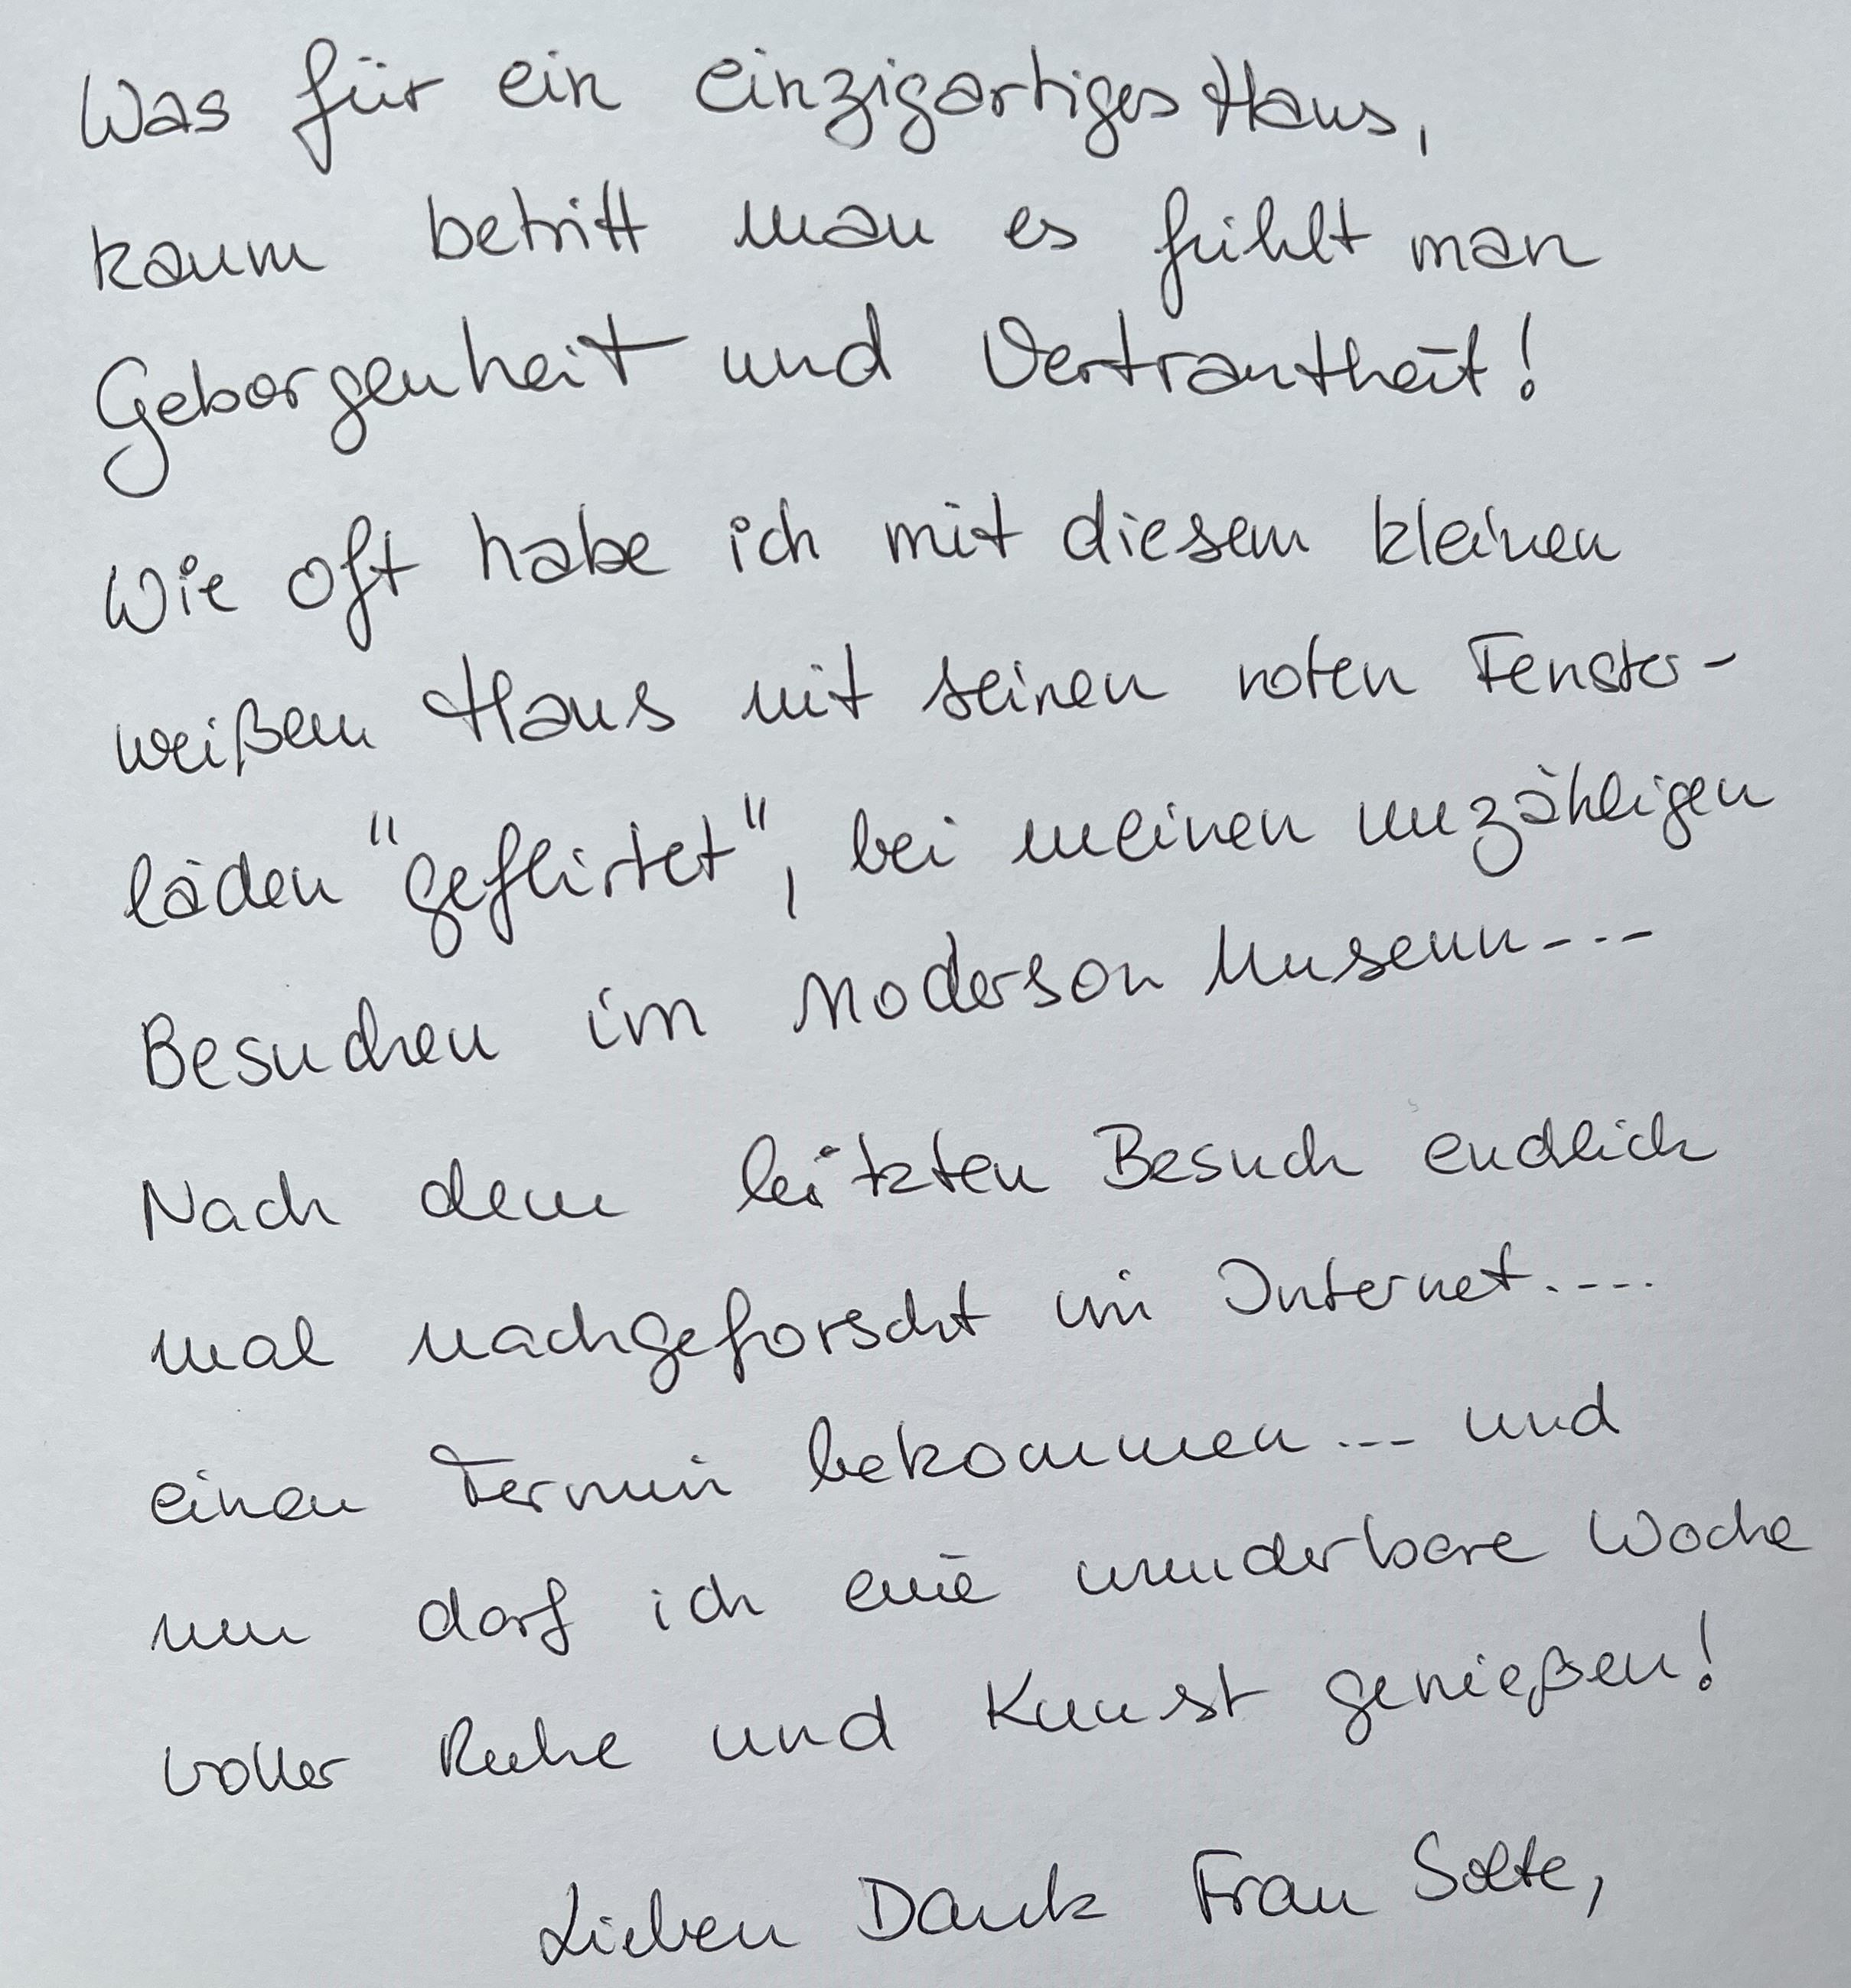 Was für ein einzigartiges Haus,
kaum betritt man es fühlt man
Geborgenheit und Vertrautheit!
Wie oft habe ich mit diesem kleinen
weißem Haus mit seinen roten Fenster-
läden "geflirtet", bei meinen unzähligen
Besuchen im Moderson Museum....
Nach dem letzten Besuch endlich
mal nachgeforscht im Internet....
einen Termin bekommen... und
nun darf ich eine wunderbare Woche
voller Ruhe und Kunst genießen!
Lieben Dank Frau Solte,